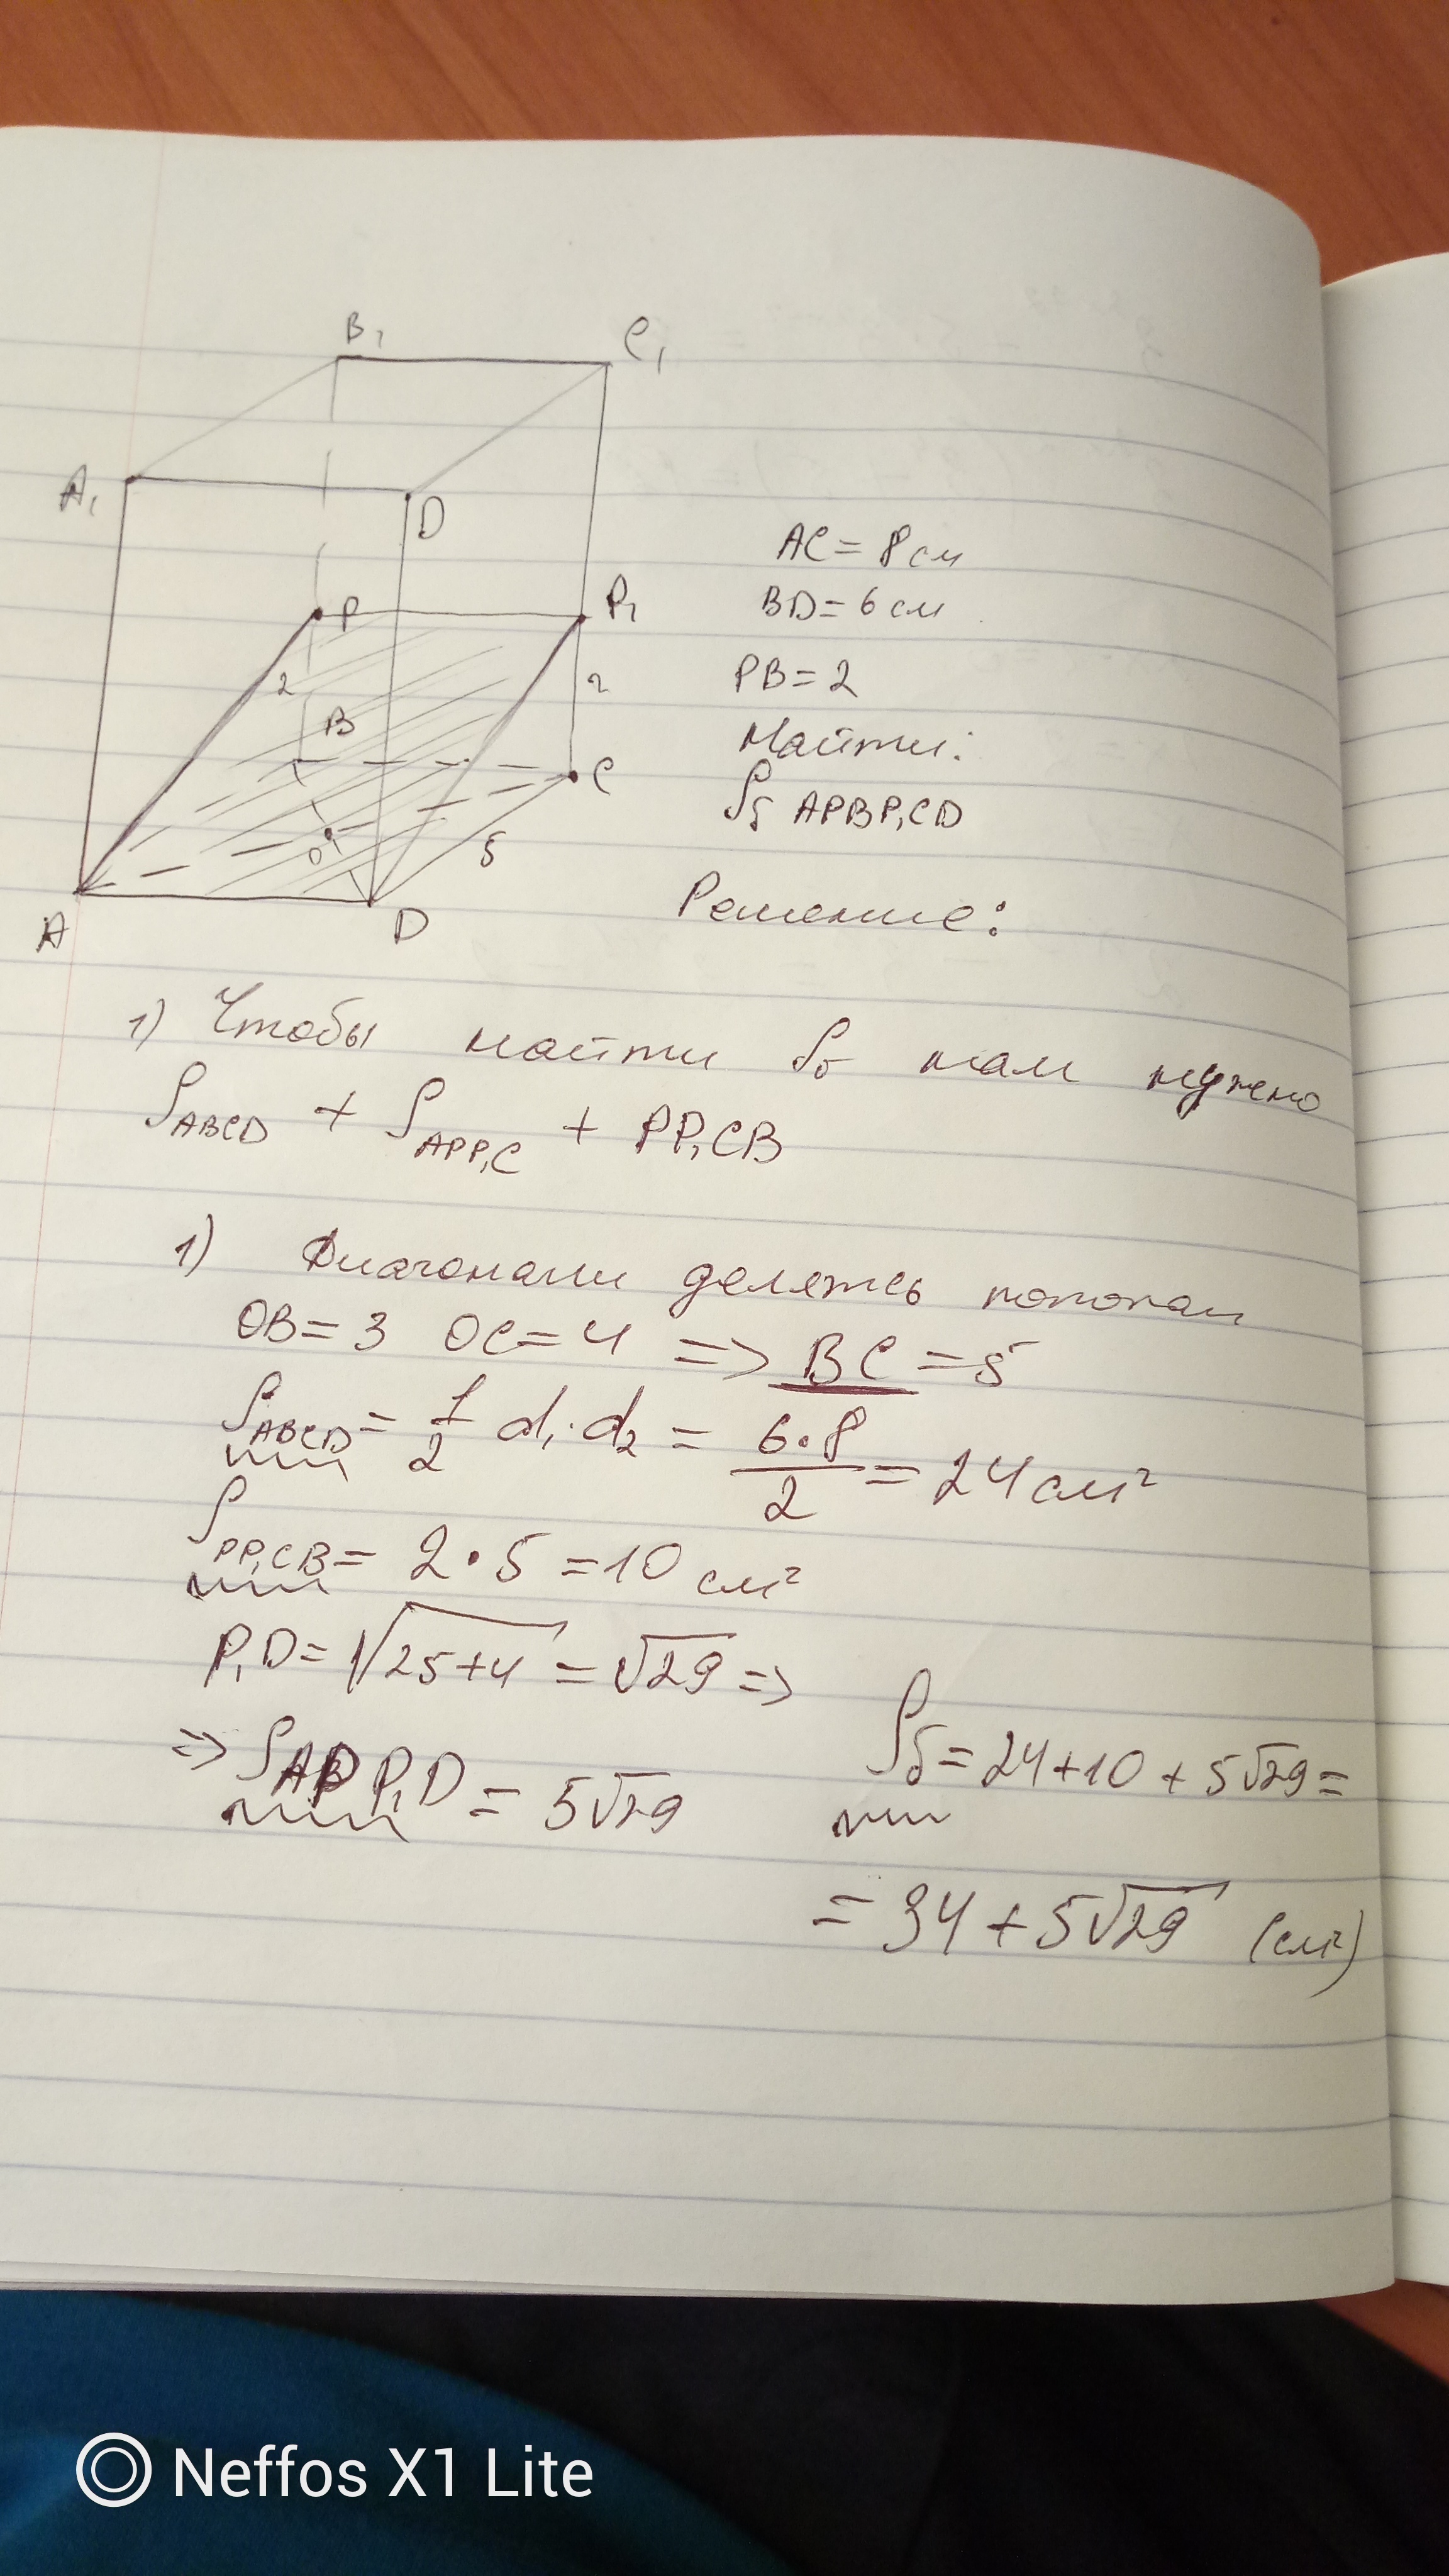 B₁
C₁
A₁
D
P
P₁
2
2
B
C
O
5
A
D
AC = 8 см
BD = 6 см
PB = 2
Найти:
Sδ APBP₁CD
Решение:
1) Чтобы найти Sδ нам нужно
S ABCD + S APP₁C + PP₁CB
1) Диагонали делятсь пополам
OB = 3 OC = 4 => BC = 5
S ABCD = 1/2 d₁ · d₂ = 6·8/2 = 24 см²
S PP₁CB = 2 · 5 = 10 см²
P₁D = √25+4 = √29 =>
=> S APP₁D = 5√29
Sδ = 24 + 10 + 5√29 =
= 34 + 5√29 (см²)
Neffos X1 Lite